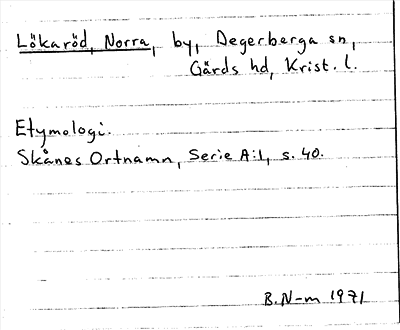 Lökaröd, Norra, by, Degerberga sn,
Gärds hd, Krist. l.
Etymologi.
Skånes Ortnamn, Serie A:1, s. 40.
B.N-m 1971